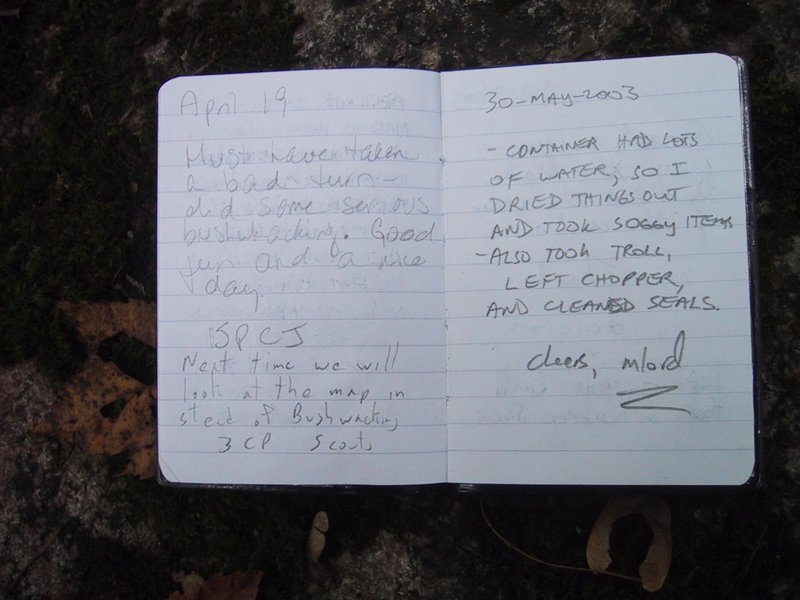 April 19
Must have taken
a bad turn -
did some serious
bushwacking. Good
fun and a nice
day.
SPCJ
Next time we will
look at the map in
stead of Bushwacking
3 CP Scouts
30-MAY-2003
- CONTAINER HAD LOTS
OF WATER, SO I
DRIED THINGS OUT
AND TOOK SOGGY ITEMS
- ALSO TOOK TROLL,
LEFT CHOPPER,
AND CLEANED SEALS.
cheers, mlord